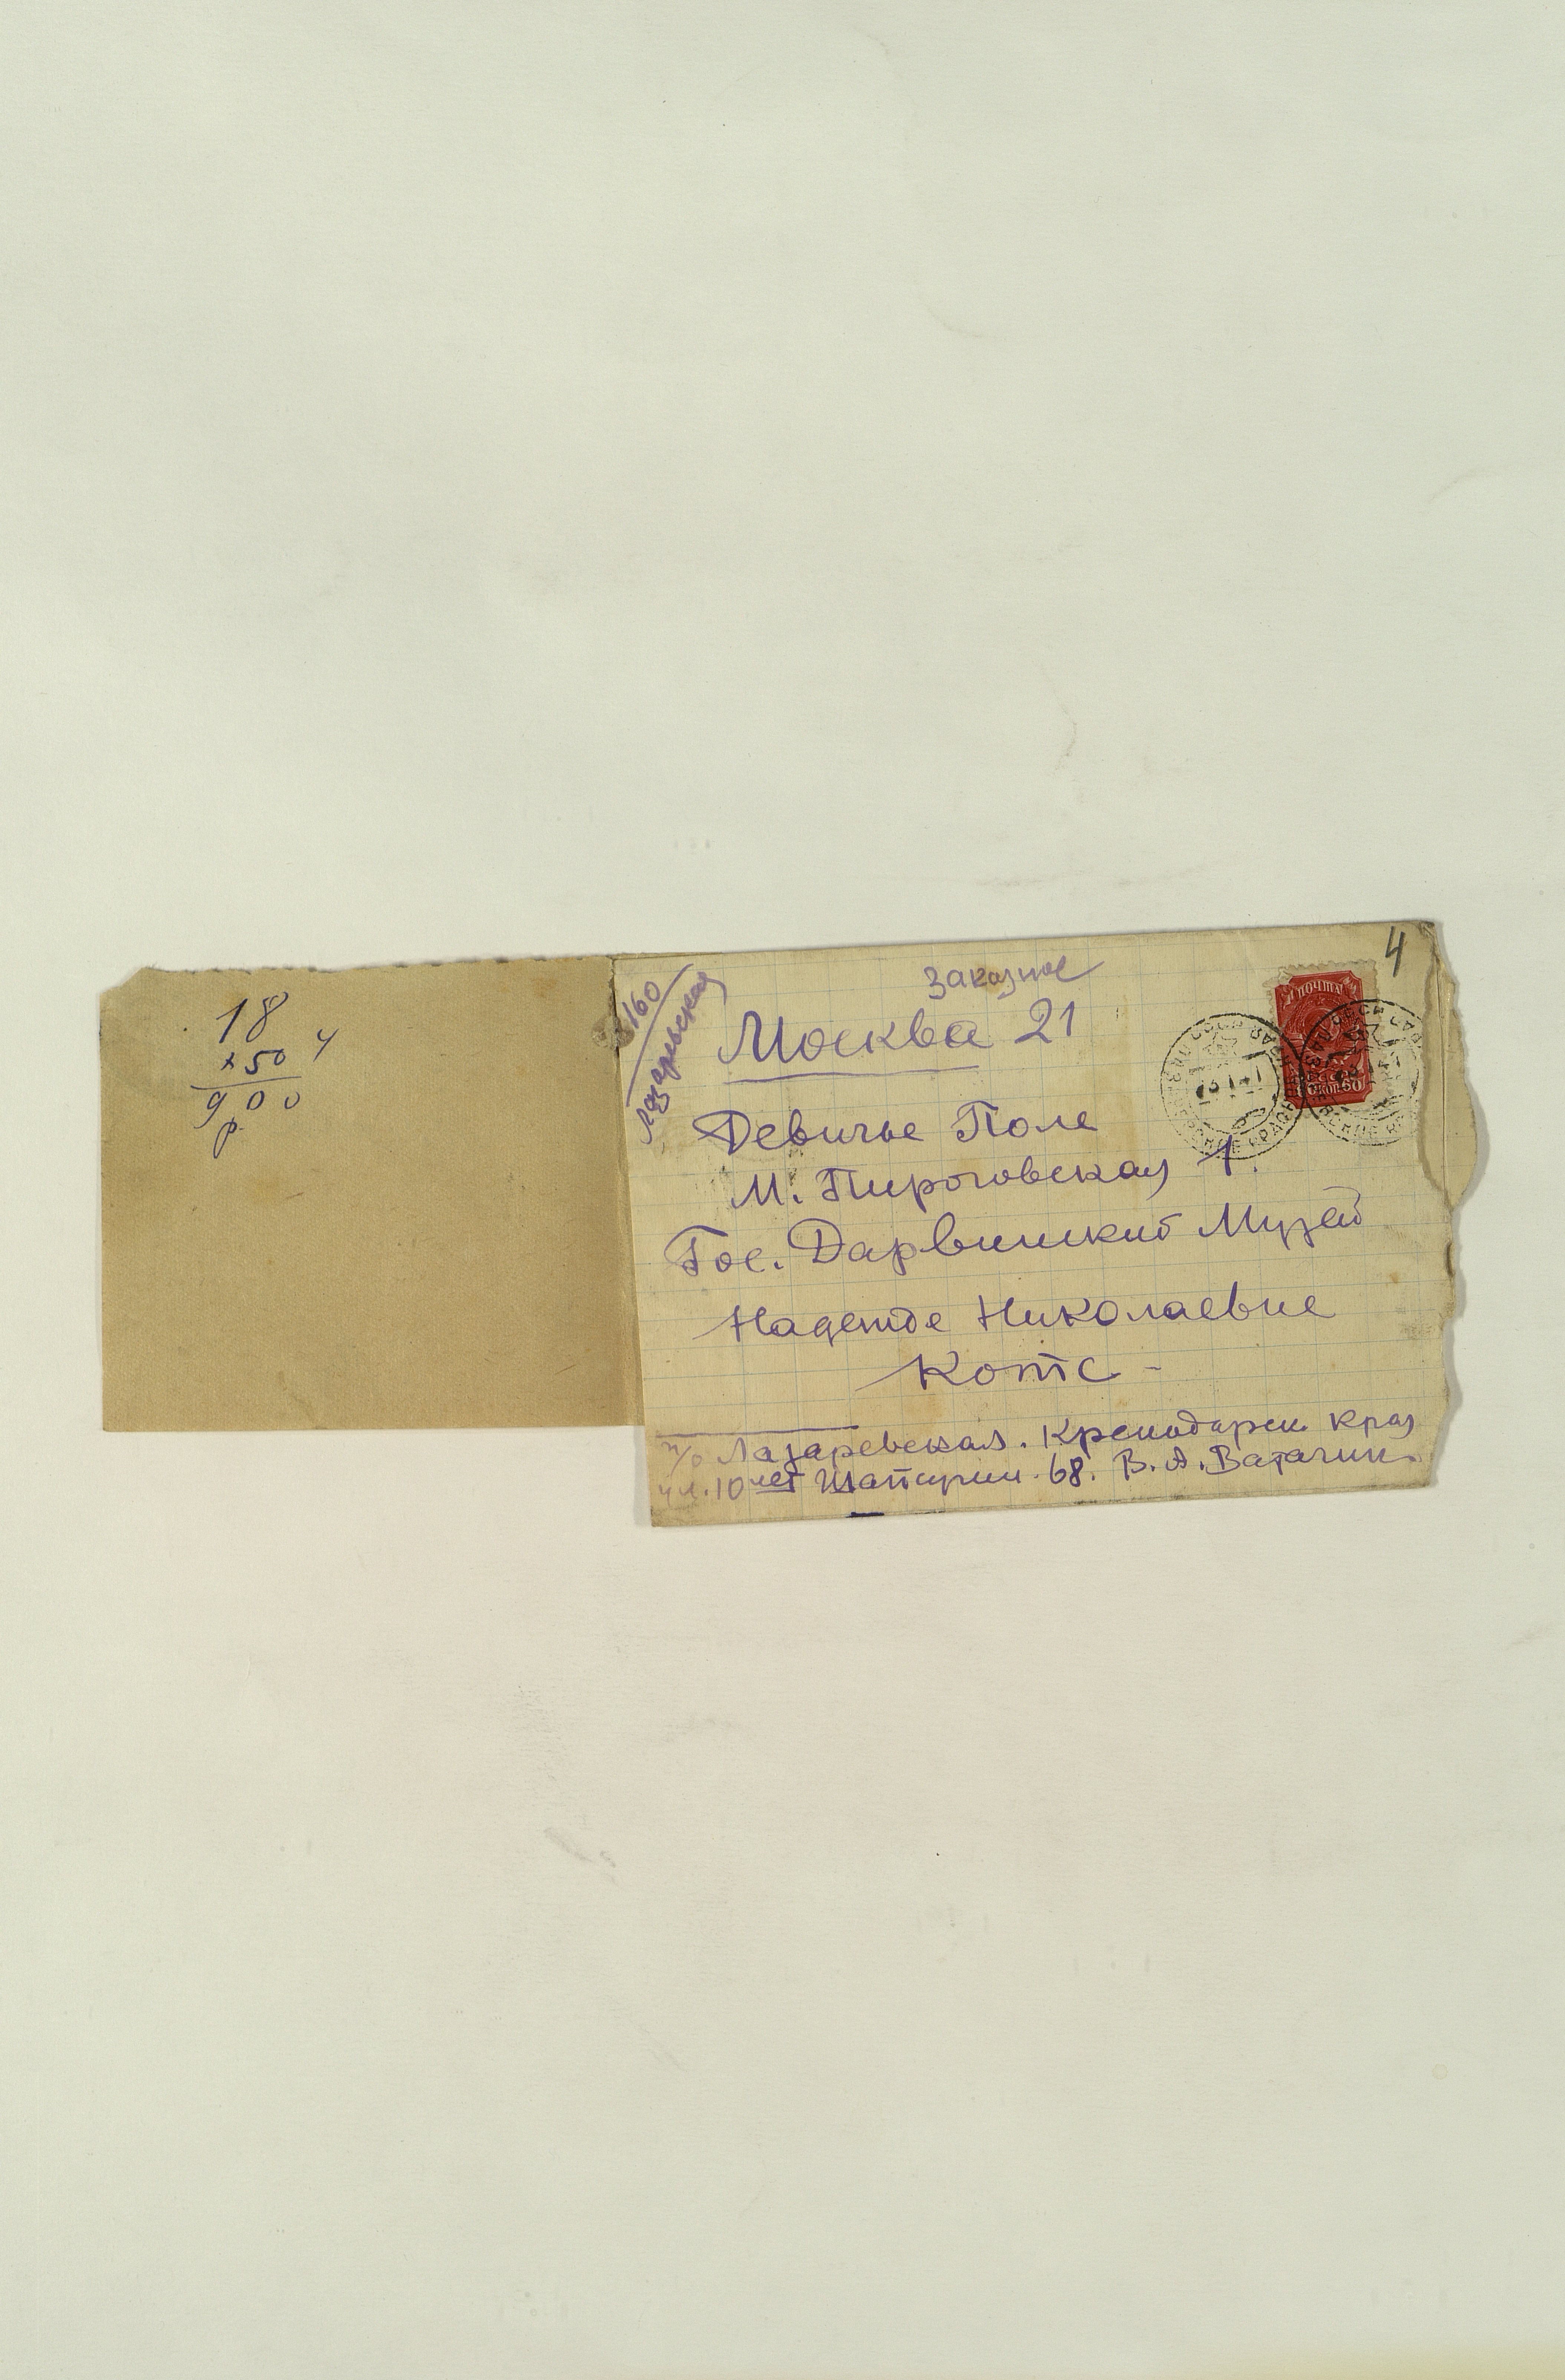 18
×50
900
р.
4
160
Лазаревская
заказное
Москва 21
Девичье Поле
М. Пироговская 1.
Гос. Дарвинский Музей
Надежде Николаевне
Котс -
п/о Лазаревская. Краснодарск. край
ул. 10 лет Шапсугии 68. В. А. Ватагин.
ПОЧТА
КОП. 60